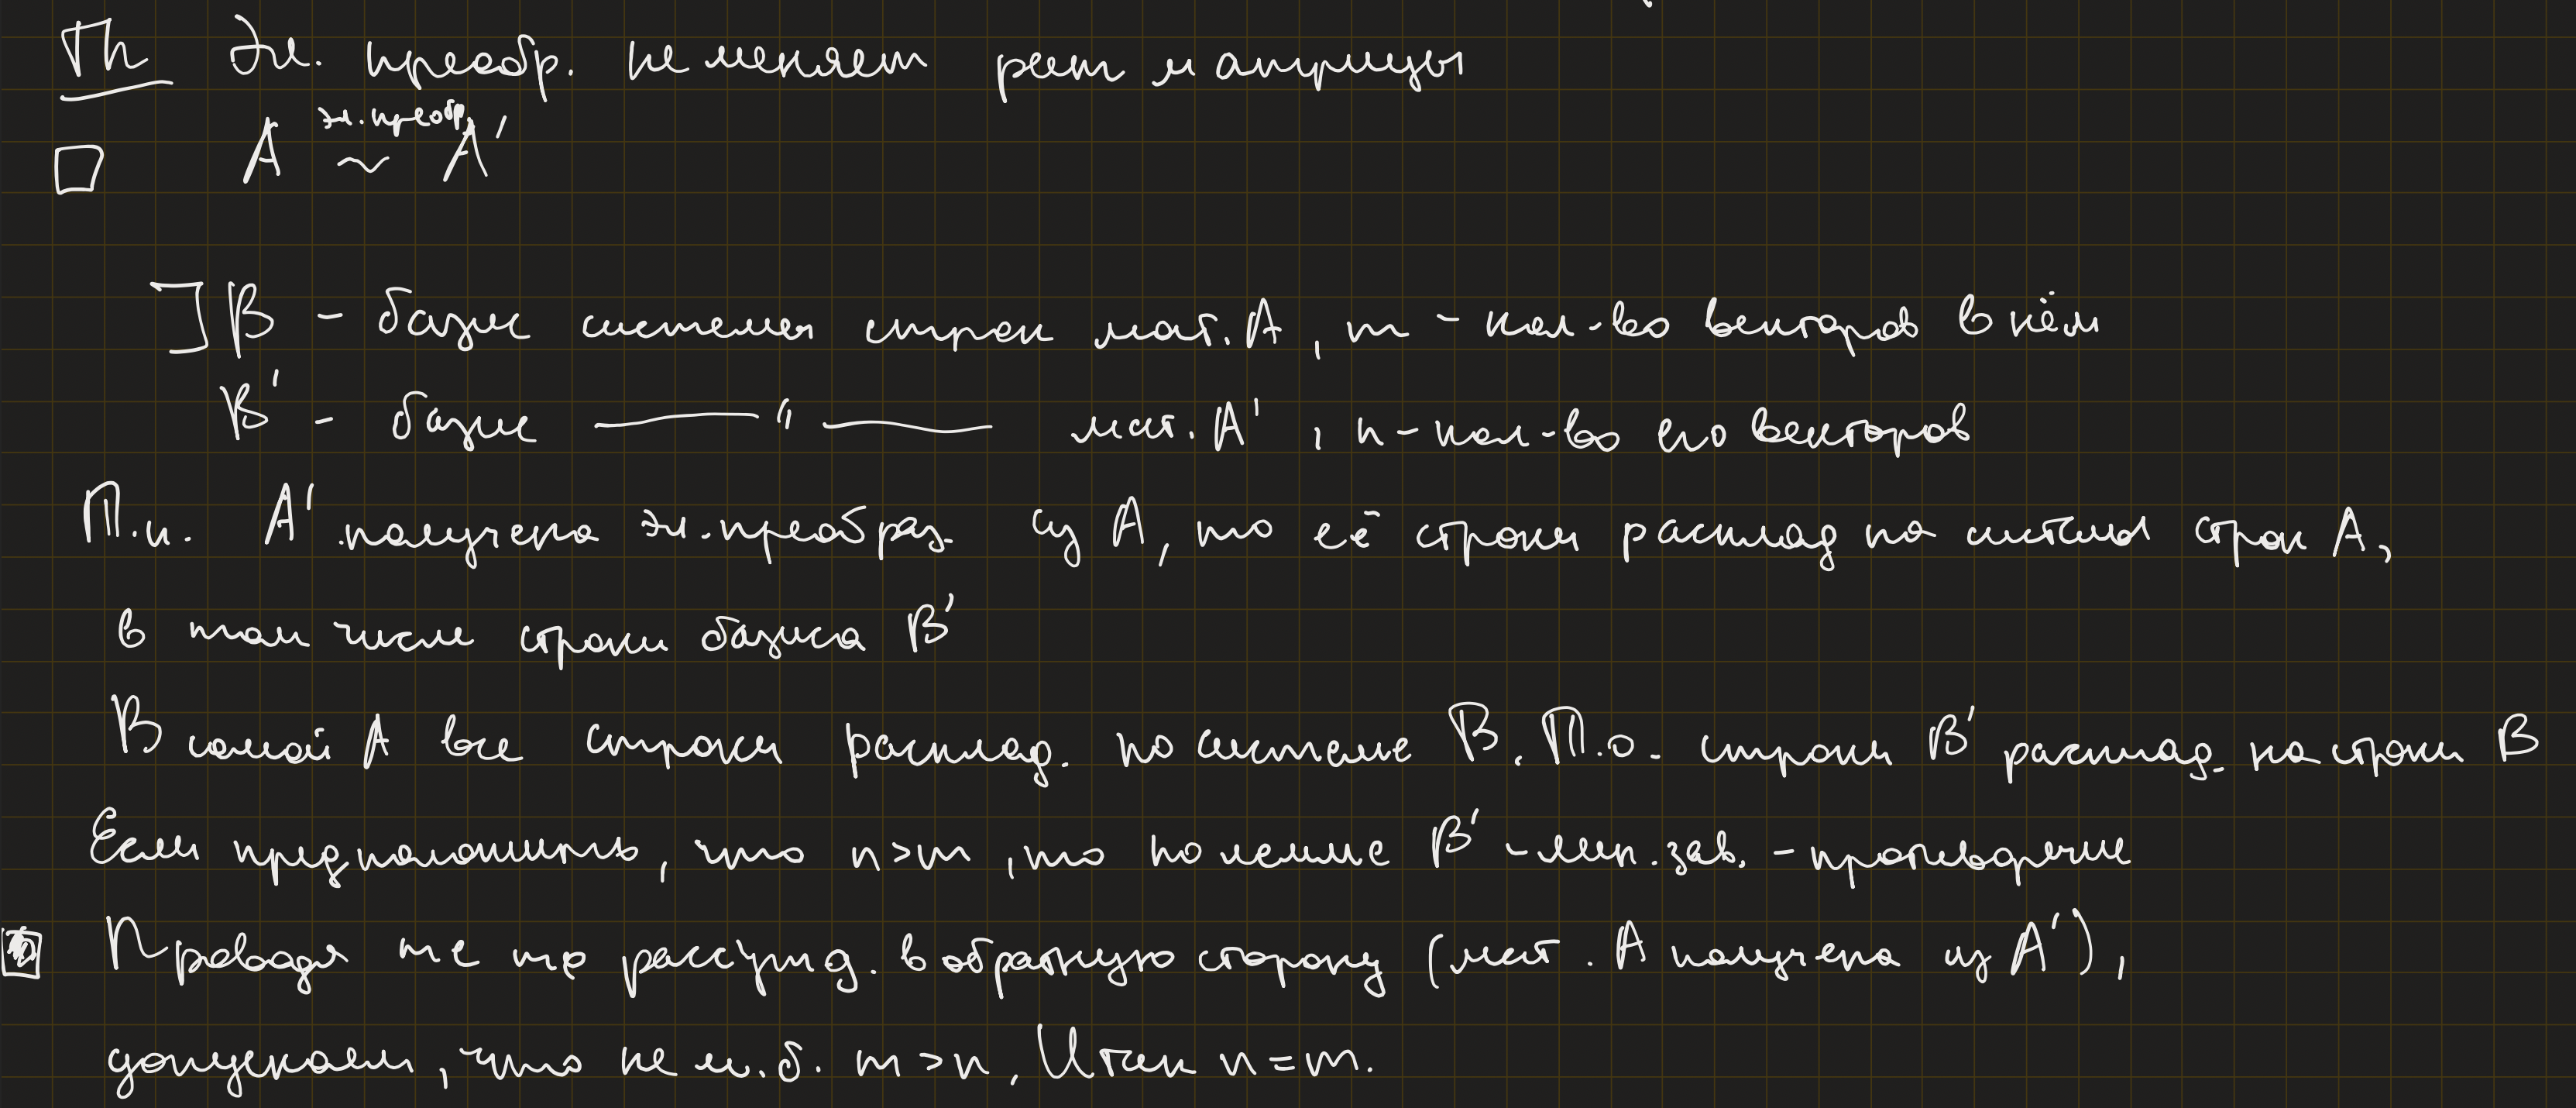 Th Эл. преобр. не меняет ранг матрицы
□ A эл.преобр. ~ A'
] B - базис системы строк мат. A, m - кол-во векторов в нём
B' - базис —— " —— мат. A', n - кол-во его векторов
Т.к. A' получена эл.преобраз. из A, то её строки расклад на системы строк A,
в том числе строки базиса B'
В самой A все строки расклад. по системе B. Т.о. строки B' расклад. на строки B
Если предположить, что n>m, то по лемме B' - лин. зав. - противоречие
Проводя те же рассужд. в обратную сторону (мат. A получена из A'),
допускаем, что не м.б. m>n. Итак n=m.